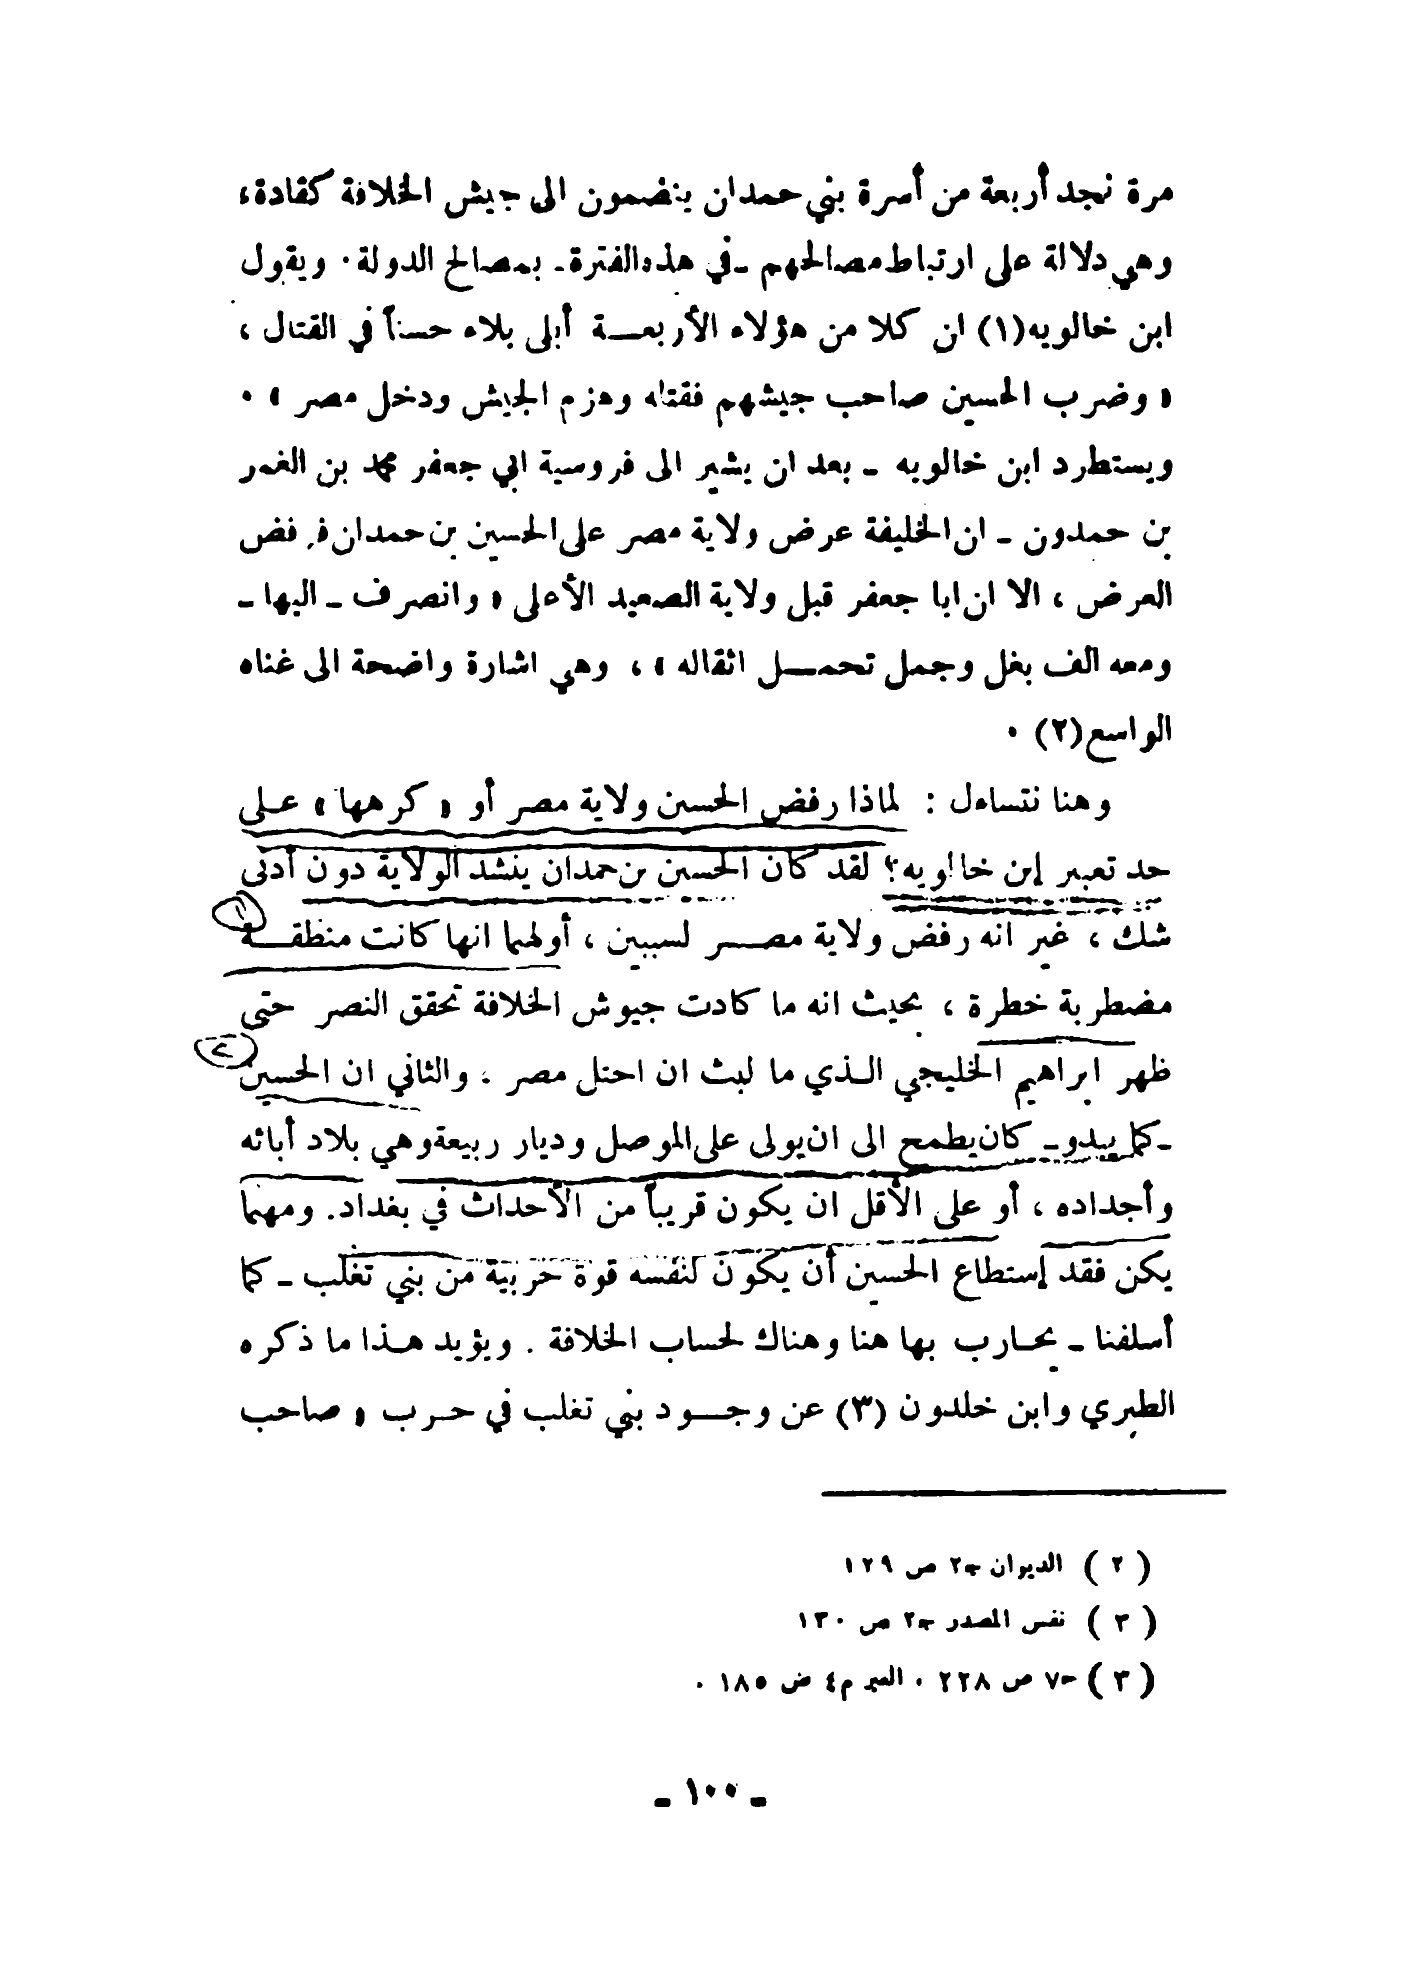 مرة نجد أربعة من أسرة بني حمدان ينضمون الى جيش الخلافة كقادة،
وهي دلالة على ارتباط مصالحهم ـ في هذه الفترة ـ بمصالح الدولة . ويقول
ابن خالويه(١) ان كلا من هؤلاء الأربعــة أبلى بلاء حسناً في القتال ،
« وضرب الحسين صاحب جيشهم فقتله وهزم الجيش ودخل مصر » .
ويستطرد ابن خالويه ـ بعد ان يشير الى فروسية ابي جعفر محمد بن الغمر
بن حمدون ـ ان الخليفة عرض ولاية مصر على الحسين بن حمدان فرفض
العرض ، الا ان ابا جعفر قبل ولاية الصعيد الأعلى « وانصرف ـ اليها ـ
ومعه ألف بغل وجمل تحمــل اثقاله » ، وهي اشارة واضحة الى غناه
الواسع(٢) .
وهنا نتساءل : لماذا رفض الحسين ولاية مصر أو « كرهها » على
حد تعبير إبن خالويه؟ لقد كان الحسين بن حمدان ينشد الولاية دون أدنى
شك ، غير انه رفض ولاية مصــر لسببين ، أولهما انها كانت منطقــة
١
مضطربة خطرة ، بحيث انه ما كادت جيوش الخلافة تحقق النصر حتى
ظهر ابراهيم الخليجي الـذي ما لبث ان احتل مصر . والثاني ان الحسين
٢
ـ كما يبدو ـ كان يطمح الى ان يولى على الموصل وديار ربيعة وهي بلاد أبائه
وأجداده ، أو على الأقل ان يكون قريباً من الأحداث في بغداد. ومهما
يكن فقد إستطاع الحسين أن يكون لنفسه قوة حربية من بني تغلب ـ كما
أسلفنا ـ يحـارب بها هنا وهناك لحساب الخلافة . ويؤيد هـذا ما ذكره
الطبري وابن خلدون (٣) عن وجــود بني تغلب في حـرب « صاحب
( ٢ ) الديوان جـ٢ ص ١٢٩
( ٢ ) نفس المصدر جـ٢ ص ١٣٠
( ٣ ) جـ٧ ص ٢٢٨ . العبر م٤ ض ١٨٥ .
ـ ١٠٠ ـ